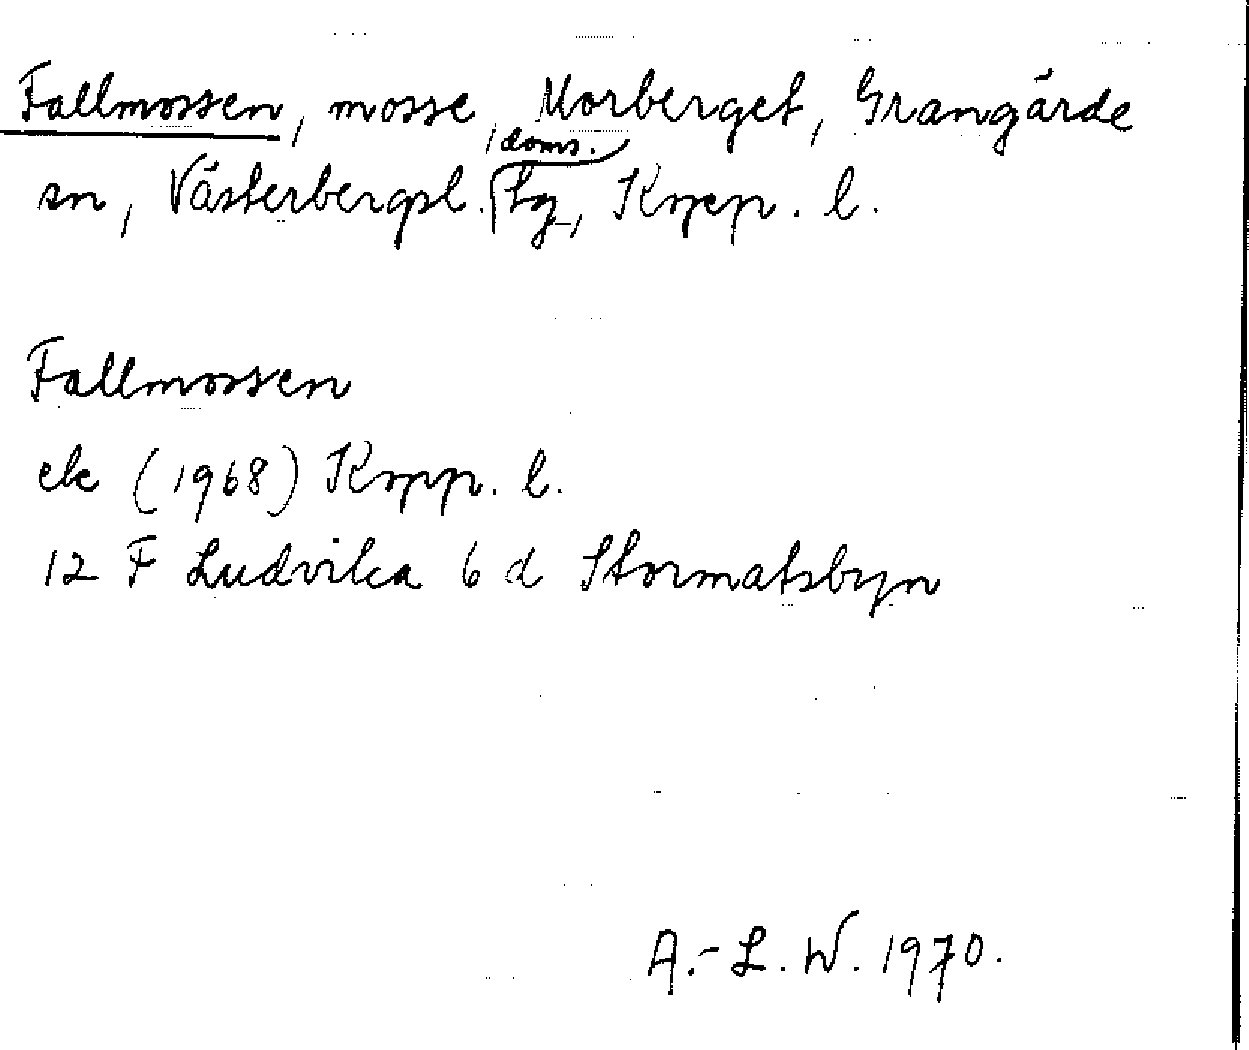 Fallmossen, mosse, Morberget, Grangärde
sn, Västerbergsl. doms. tg, Kopp. l.
Fallmossen
ek (1968) Kopp. l.
12 F Ludvika 6 d Stormatsbyn
A.-L. W. 1970.